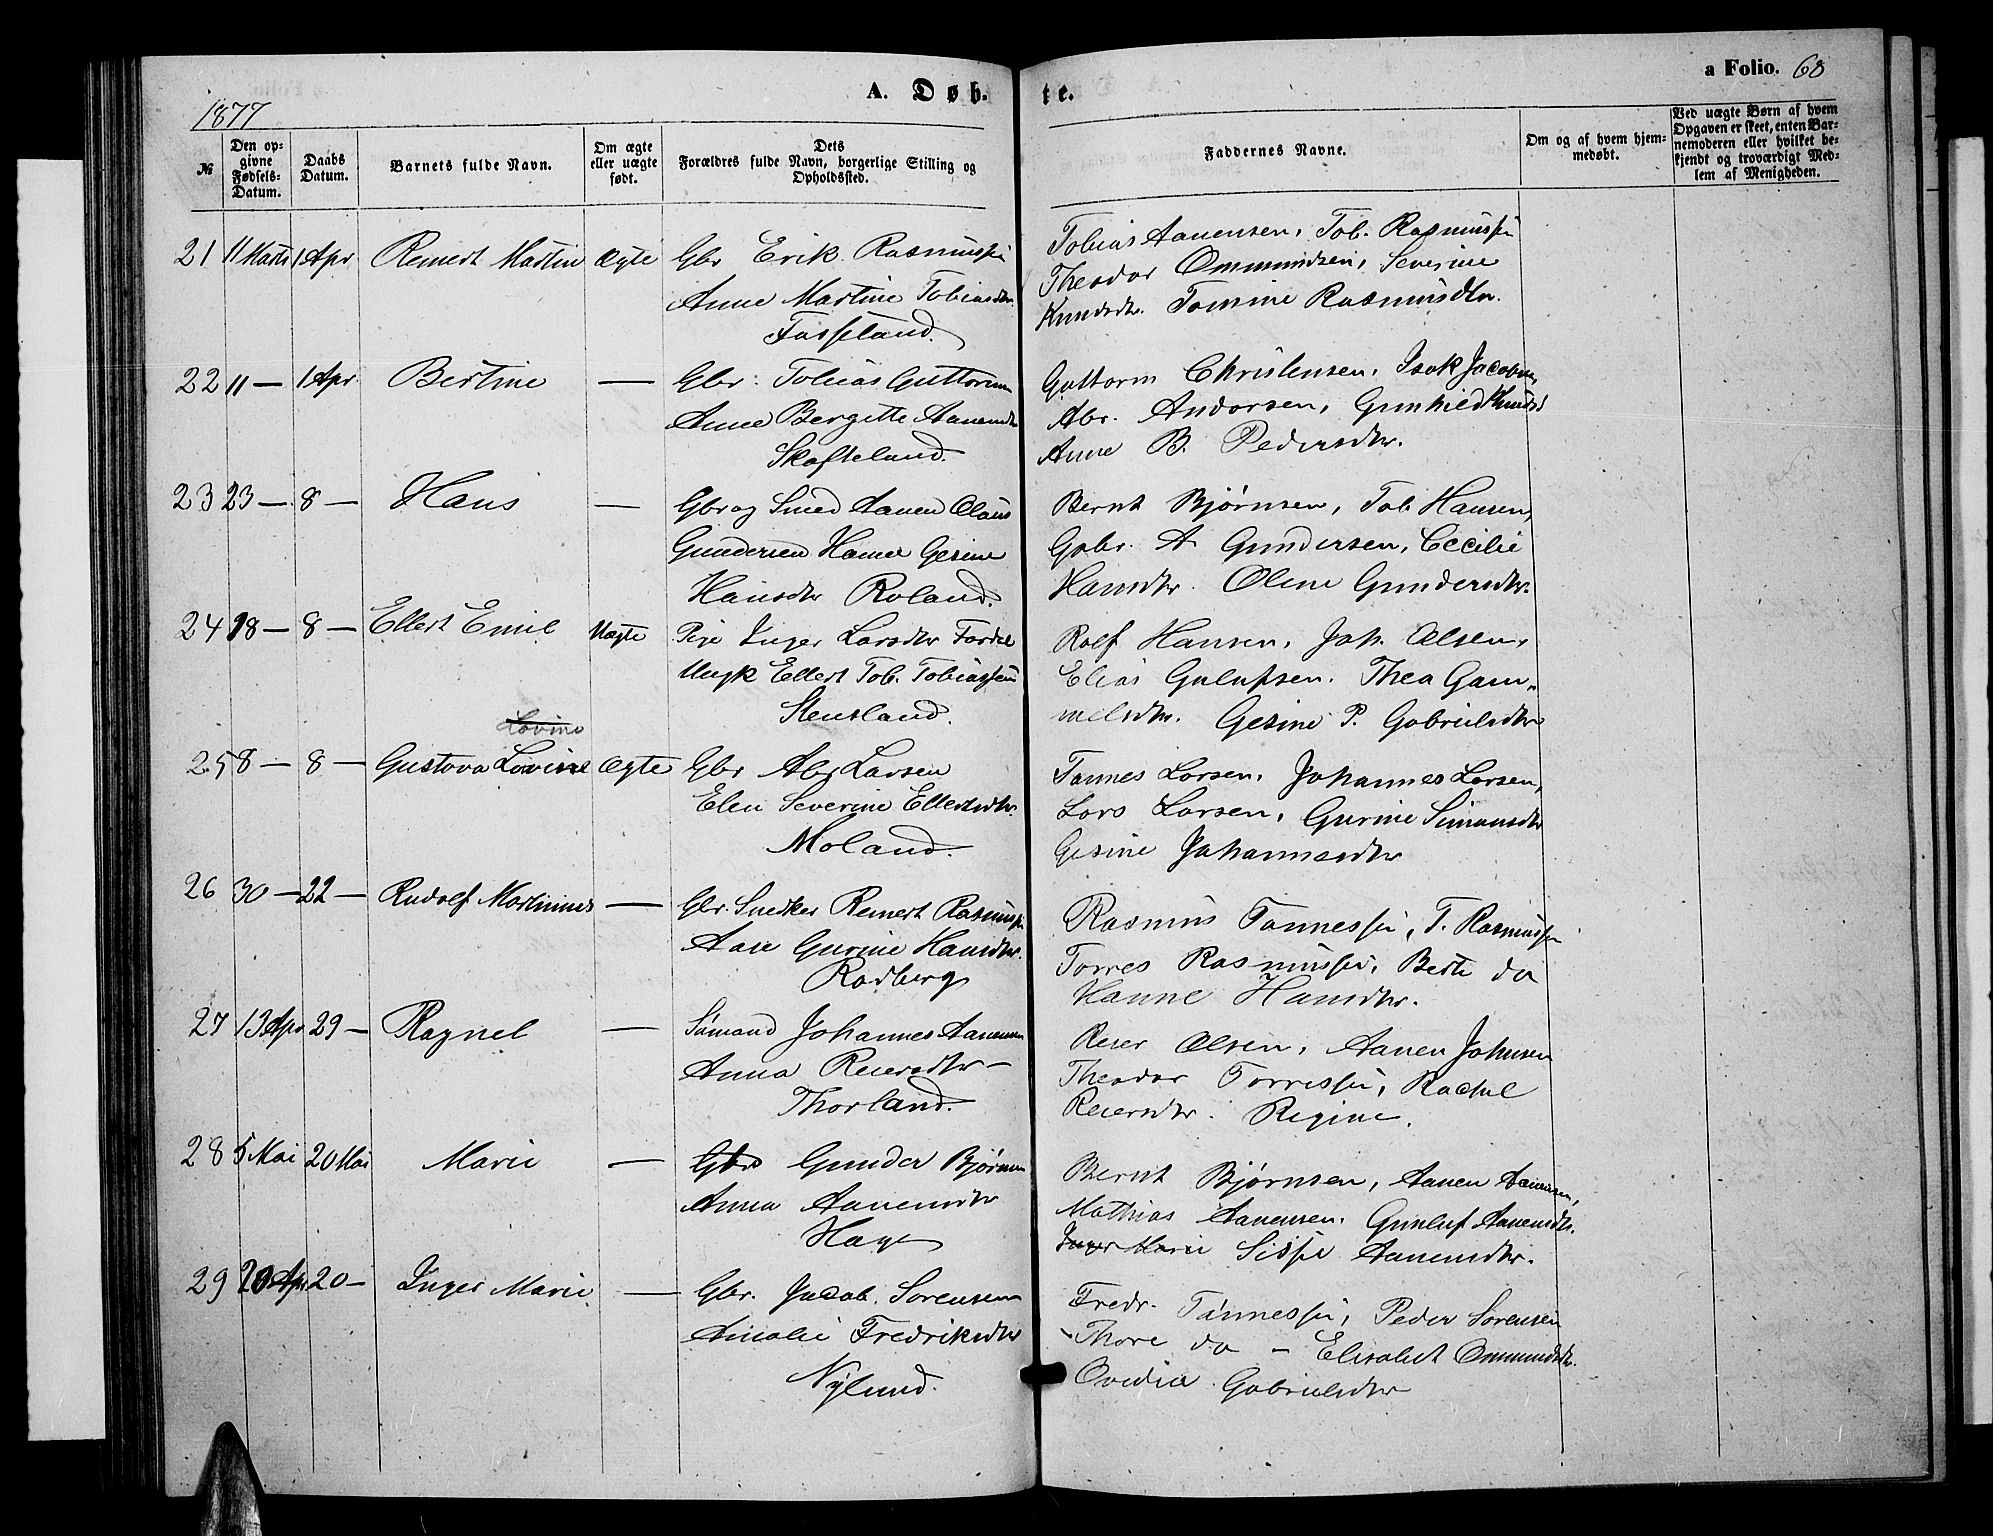 a Folio. 68
A. Døb-te.
1877
№
Den op-
givne
Fødsels-
Datum.
Daabs
Datum.
Barnets fulde Navn.
Om ægte
eller uægte
født.
Dets
Forældres fulde Navn, borgerlige Stilling og
Opholdssted.
Faddernes Navne.
Om og af hvem hjem-
medøbt.
Ved uægte Børn af hvem
Opgaven er skeet, enten Bar-
nemoderen eller hvilket be-
kjendt og troværdigt Med-
lem af Menigheden.
21 11 Marts 1 Apr Remert Martin ægte Gbr Erik Rasmussen
Anne Martine Tobiasdtr.
Fasseland.
Tobias Aanensen, Tob. Rasmussen
Theodor Ommundsen, Severine
Knudsdtr. Tomine Rasmusdtr.
22 11 — 1 Apr Bertine — Gbr. Tobias Guttormsen
Anne Bergitte Aanensdtr
Skofteland.
Guttorm Christensen, Isak Jacobsen,
Abr. Andorsen, Gunhild Knudsd
Anne B. Pedersdtr.
23 23 — 8 — Hans — Gbr og Smed Aanen Olaus
Gundersen Hanne Gesine
Hansdtr Roland.
Bernt Bjørnsen, Tob. Hansen,
Gabr. A Gundersen, Cecilie
Hansdtr. Oline Gundersdtr.
24 18 — 8 — Ellert Emil Uægte Pige Inger Larsdtr Fardal
Ungk Ellert Tob. Tobiassen
Stensland.
Rolf Hansen, Joh. Olsen,
Elias Gulufsen. Thea Gam-
melsdtr. Gesine P. Gabrielsdtr
Lovine
25 8 — 8 — Gustava Lovise ægte Gbr Abr Larsen
Elen Severine Ellertsdtr.
Moland.
Tønnes Larsen, Johannes Larsen,
Lars Larsen, Gurine Simonsdtr
Gesine Johannesdtr
26 30 — 22 — Rudolf Martinius — Gbr. Snedker Remert Rasmussen
Aase Gurine Hansdtr.
Rodberg
Rasmus Tønnessen, T. Rasmussen
Torres Rasmussen, Berte do
Hanne Hansdtr.
27 13 Apr 29 — Ragnel — Sømand Johannes Aanensen
Anna Reiersdtr —
Thorland.
Reier Olsen, Aanen Johnsen
Theodor Torressen, Rachel
Reiersdtr. Regine.
28 5 Mai 20 Mai Marie — Gbr Gunder Bjørnsen
Anna Aanensdtr
Hage
Bernt Bjørnsen, Aanen Aanensen,
Mathias Aanensen. Gunluf Aanensdtr.
Inger Marie Sisse Aanensdtr.
29 20 Apr 20 — Inger Marie — Gbr. Jacob Sørensen
Amalie Fredriksdtr
Nylund.
Fredr. Tønnessen, Peder Sørensen
Thore do — Elisabet Ommundsdtr.
Ovedia Gabrielsdtr